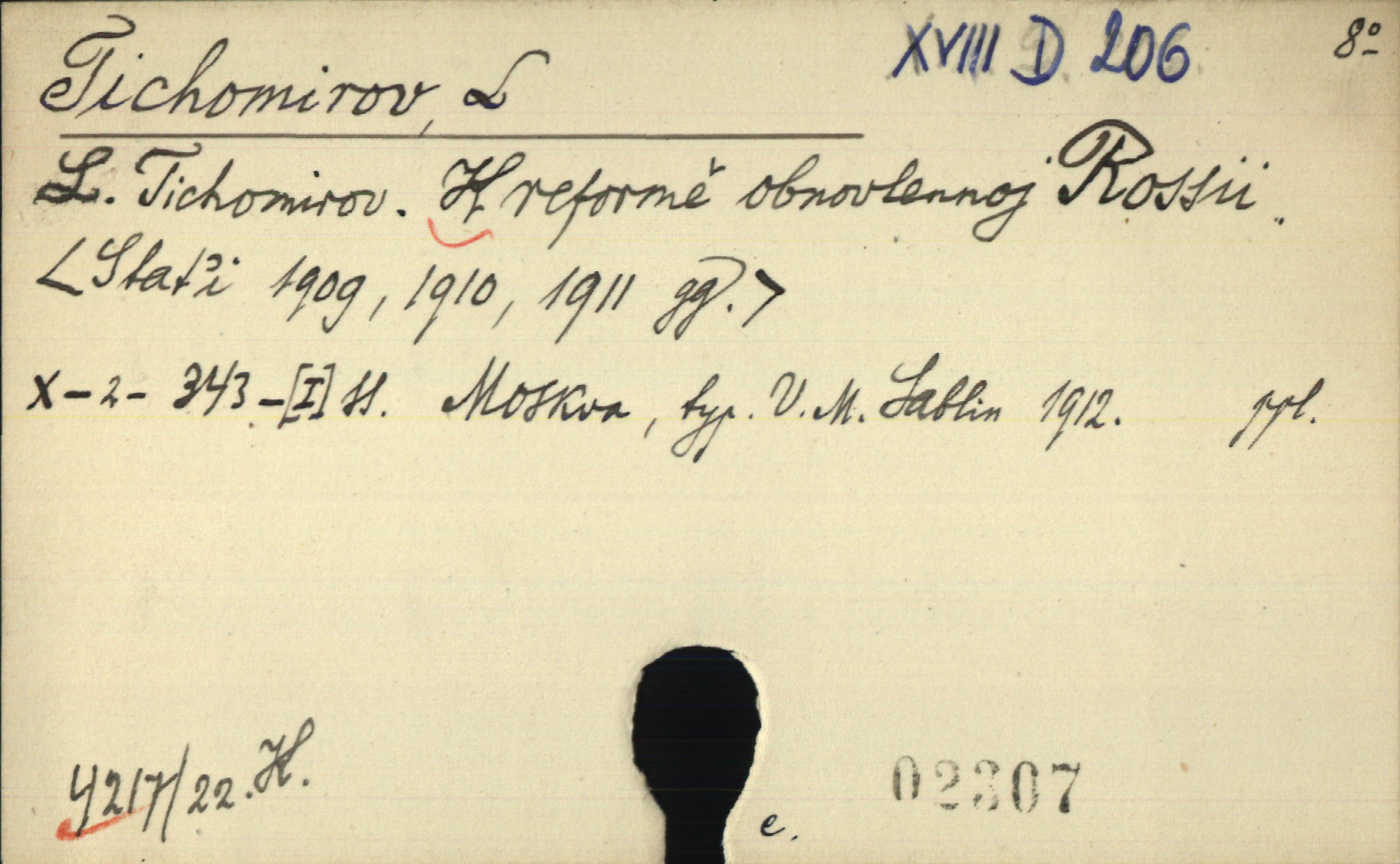 XVIII D 206 8º
Tichomirov, L
L. Tichomirov. K reformě obnovlennoj Rossii.
<Stat'i 1909, 1910, 1911 gg.>
X-2-343-[I] ss. Moskva, typ. V. M. Sablin 1912. ppl.
4217/22. K.
02307
e.